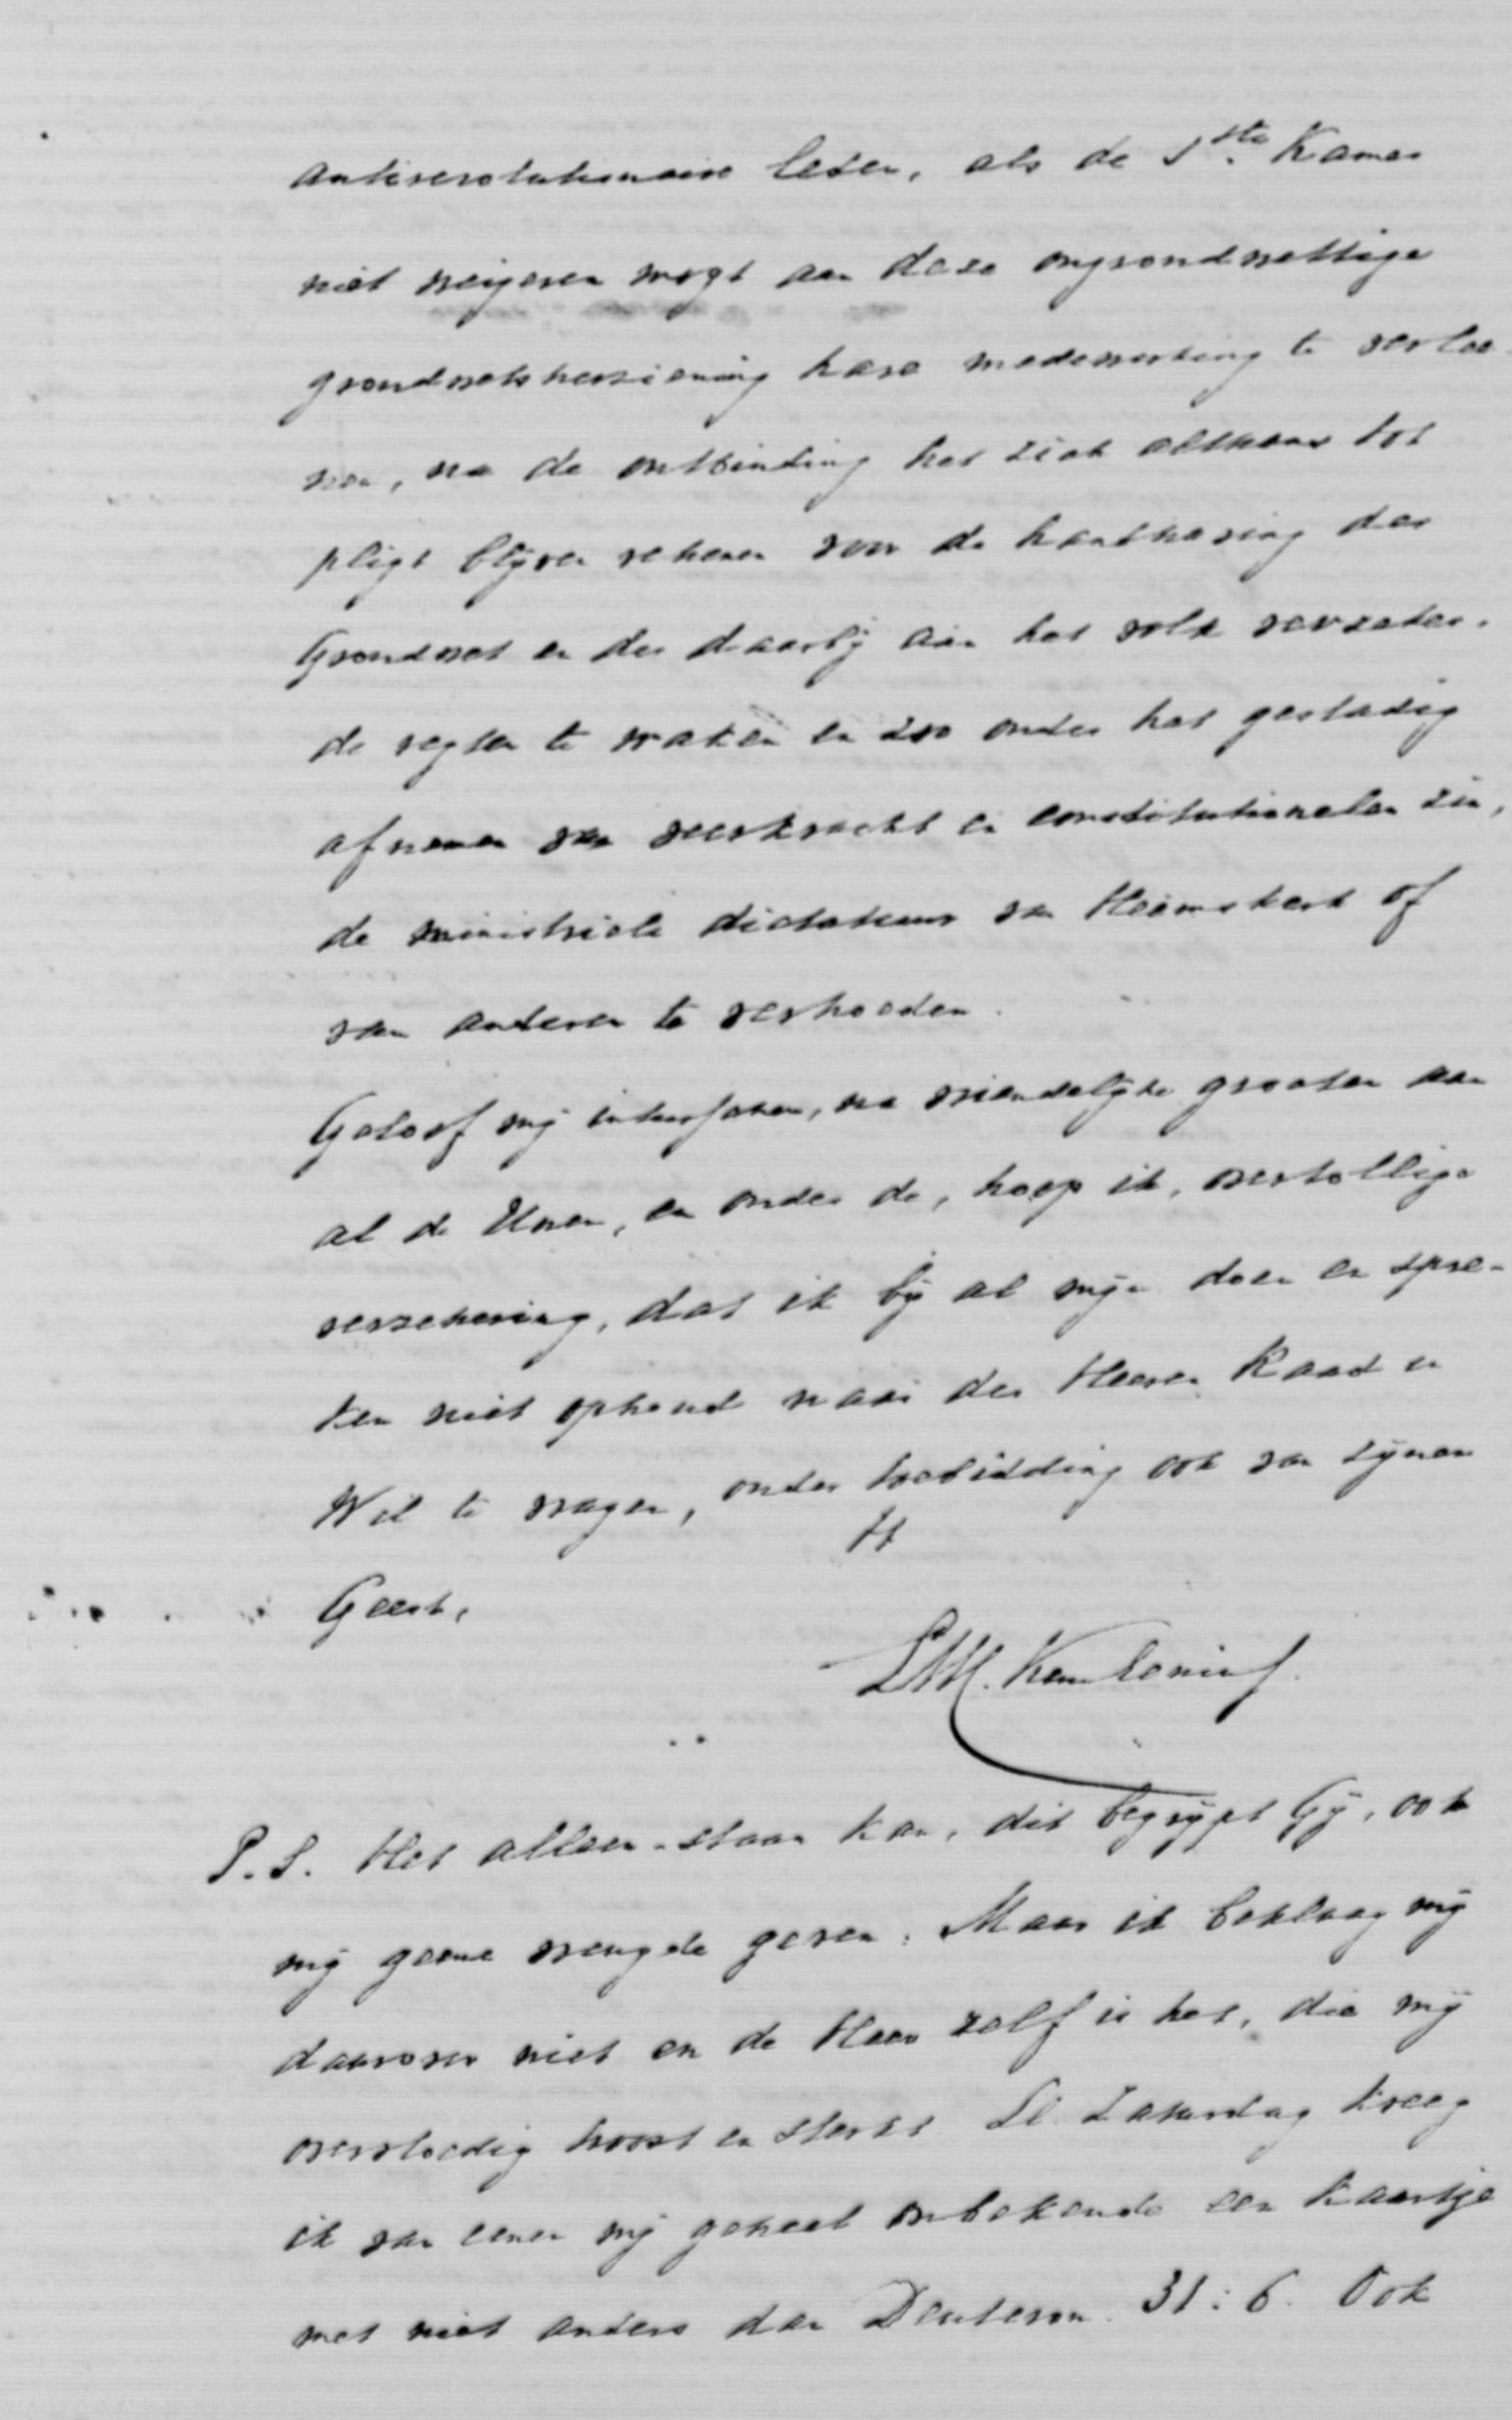 antirevolutionaire leden, als de 1ste. Kamer
niet weigeren mogt aan deze ongrondwettige
grondwetsherziening hare medewerking te verlee
nen, na de ontbinding het zich althans tot
pligt blijven rekenen voor de handhaving der
Grondwet en der daarbij aan het volk verzeker-
de regten te waken en zoo onder het gestadig
afnemen van veerkracht en constitutionelen zin,
de ministriele dictatuur van Heemskerk of
van anderen te verhoeden.
Geloof mij intusschen, na vriendelijke groeten aan
al de Uwen, en onder de, hoop ik, overtollige
verzekering, dat ik bij al mijn doen en spre-
ken niet ophoud naar des Heeren Raad en
Wil te vragen, onder toebidding ook van Zijnen
H
Geest,
P.S. Het alleen-staan kan, dit begrijpt Gij, ook
mij geene vreugde geven. Maar ik beklaag mij
daarover niet en de Heer zelf is het, die mij
overvloedig troost en sterkt Ll. Zaturdag kreeg
ik van eenen mij geheel onbekende een kaartje
met niet anders dan Deuteron. 31:6. Ook